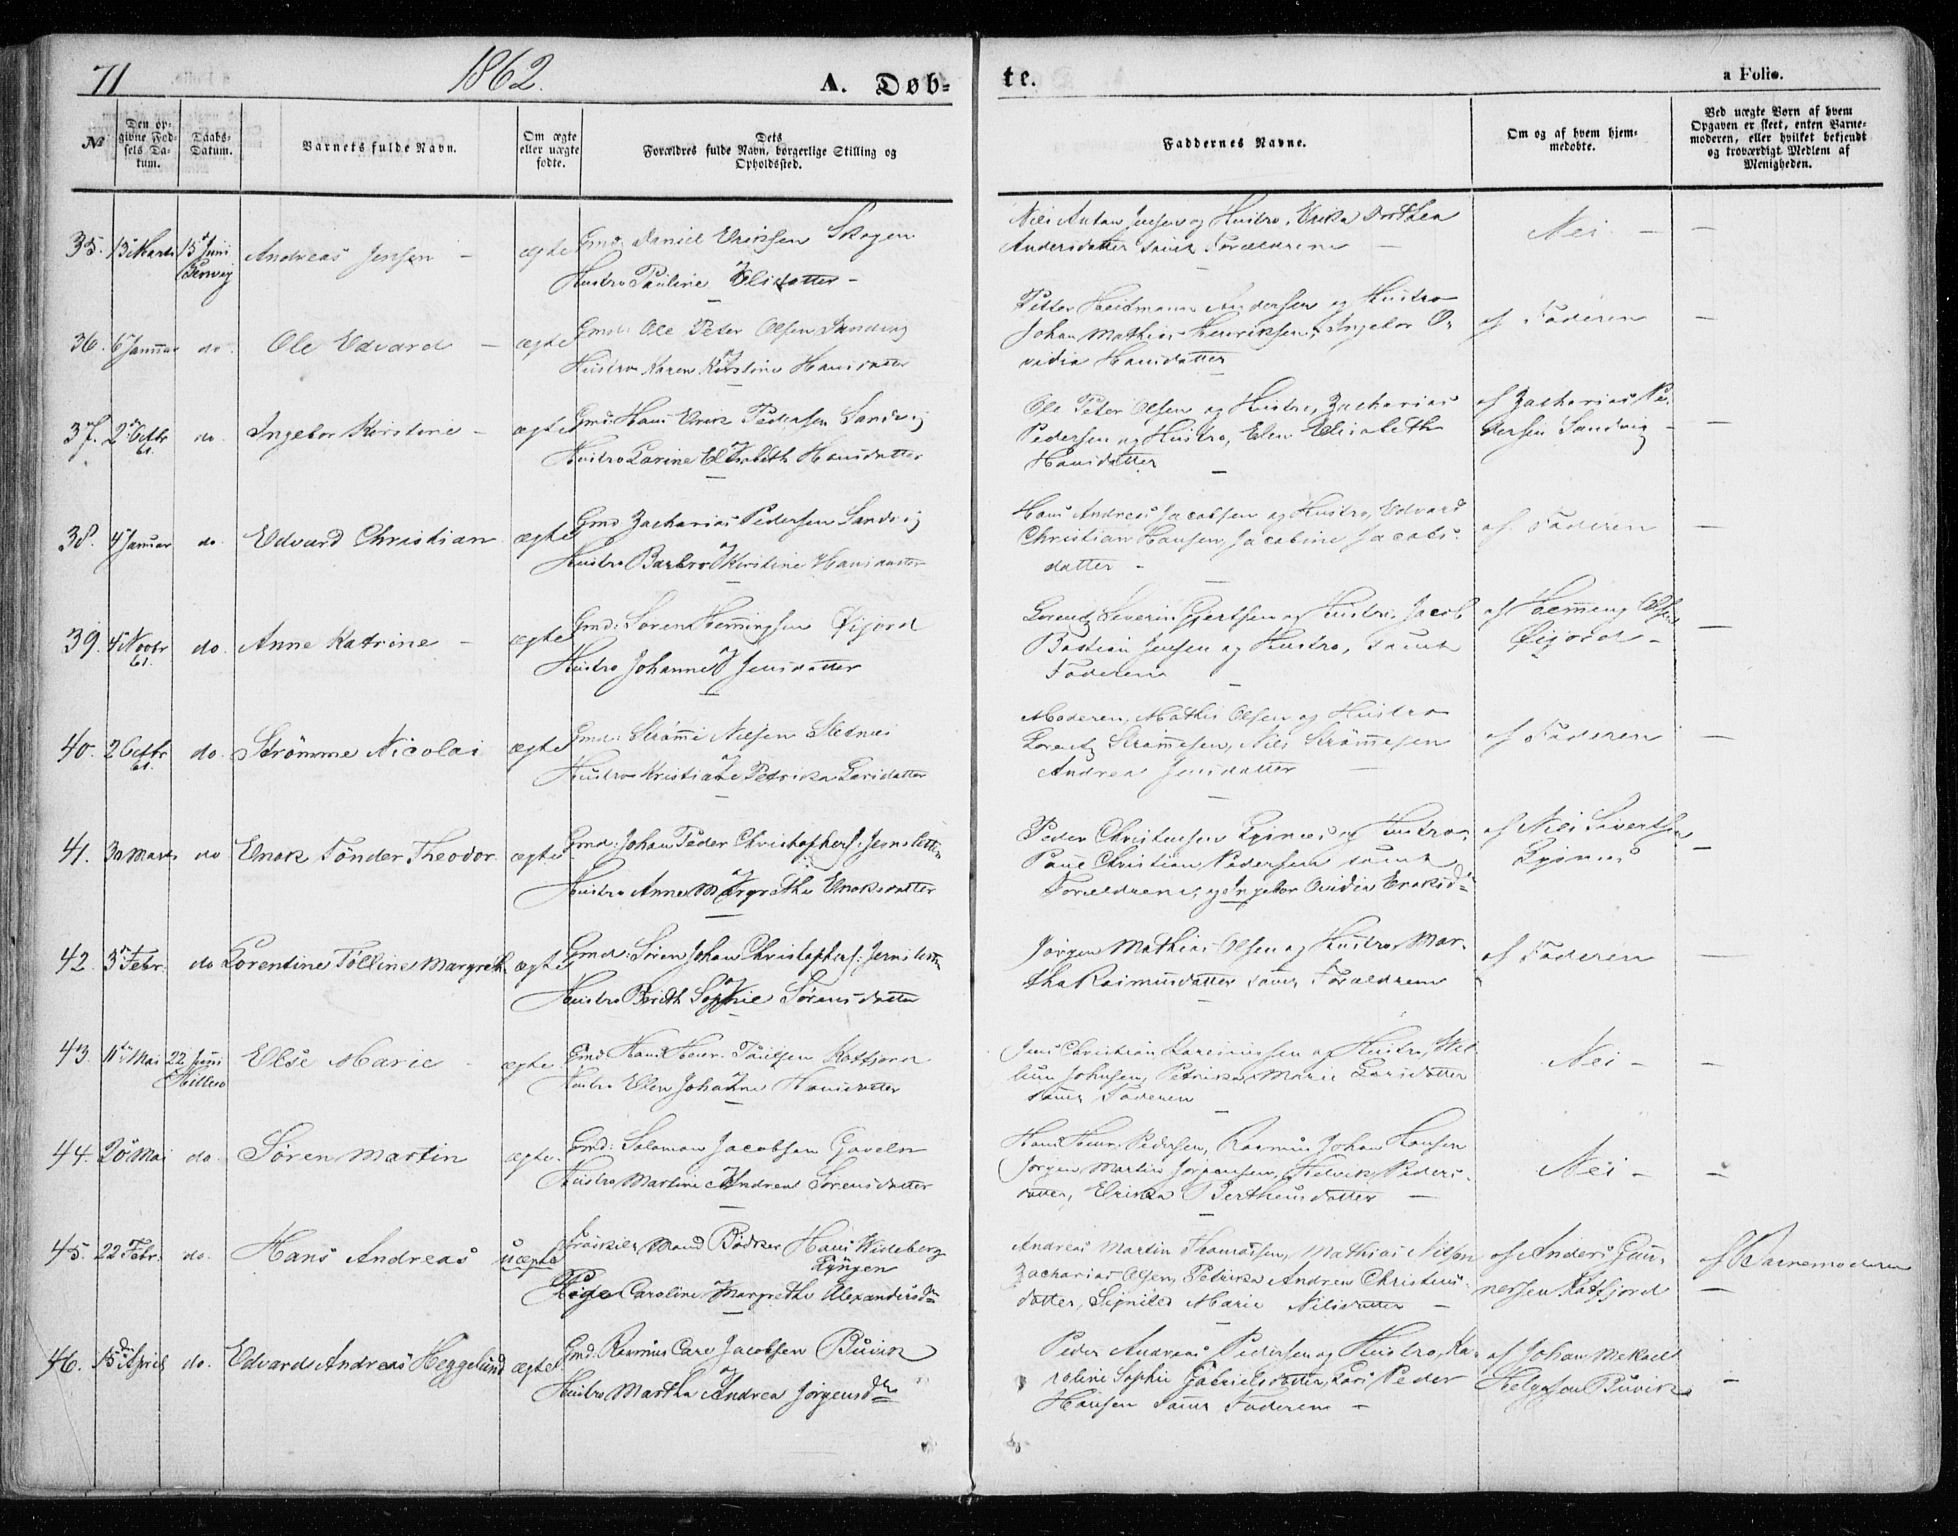 71
1862.
A. Døb-
te.
a Folio.
No
Den op-
givne Fød-
sels Da-
tum.
Daabs-
Datum.
Barnets fulde Navn.
Om ægte
eller uægte
fødte.
Dets
Forældres fulde Navn, borgerlige Stilling og
Opholdssted.
Faddernes Navne.
Om og af hvem hjem-
medøbte.
Ved uægte Børn af hvem
Opgaven er skeet, enten Barne-
moderen, eller hvilket bekjendt
og troværdigt Medlem af
Menigheden.
35. 15 Marts 15 Juni
Andreas Jensen - ægte
Gmd: Daniel Eriksen Skogen
og
Hustro Pauline Olsdatter -
Nils Anton Jensen og Hustro, Erika Dorthea
Andersdatter samt Forældrene -
Nei - -
36. 6 Januar do. Ole Edvard - ægte
Gmd: Ole Peter Olsen Sandvig
og
Hustro Karen Kirstine Hansdatter
Petter Heitmann Andersen og Hustro
Johan Mathias Henriksen, Ingebor O-
vidia Hansdatter
af Faderen -
37. 2 Octbr 61. do. Ingebor Kirstine - ægte
Gmd: Hans Erik Pedersen Sandvig
og
Hustro Larine Elisabeth Hansdatter
Ole Peter Olsen og Hustro, Zacharias
Pedersen og Hustro, Elen Elisabeth
Hansdatter -
af Zacharias Pe-
dersen Sandvig -
38. 4 Januar do. Edvard Christian ægte
Gmd Zacharias Pedersen Sandvig
og
Hustro Barbro Kirstine Hansdatter
Hans Andreas Jacobsen og Hustro, Edvard
Christian Hansen, Jacobine Jacobs-
datter -
af Faderen -
39. 4 Novbr 61. do. Anne Katrine - ægte
Gmd: Søren Hemingsen Øijord
og
Hustro Johanne Jensdatter
Lorentz Severin Gjertsen og Hustro, Jacob
Bastian Jensen og Hustro, samt
Faderen -
af Hemming Olsen
Øijord -
40. 2 Octbr 61. do. Strømme Nicolai ægte
Gmd: Strømme Nilsen Sletnes
og
Hustro Kristiane Petrika Larsdatter
Moderen, Mathis Olsen og Hustro
Lorentz Strømmesen, Nils Strømmesen
Andrea Jensdatter -
af Faderen -
41. 30 Marts do Enok Tønder Theodor ægte
Gmd: Johan Peder Christophers: Jernsletten
og
Hustro Anne Margrethe Enoksdatter
Peder Christensen og Hustro,
Paul Christian Pedersen samt
Forældrene, og Ingebor Ovidia Enoksdr
af Nils Sivertsen
42. 3 Febr. do Lorentine Tolline Margreth ægte
Gmd: Søren Johan Christophers: Jernsletten
og
Hustro Berith Sophie Sørensdatter
Jørgen Mathias Olsen og Hustro, Mar-
tha Rasmusdatter samt Forældrene
af Faderen -
43. 11te Mai 22 Juni
Else Marie - ægte.
Gmd Hans Henr. Paulsen Katfjord
og
Hustro Elen Johanne Hansdatter
Jens Christian og Hustro,
Johnsen, Petrika Marie Larsdatter
samt Faderen -
Nei - -
44. 20 Mai do Søren Martin ægte.
Gmd: Salomon Jacobsen Gaveln
og
Hustro Martine Andrea Sørensdatter
Hans Henr. Pedersen, Rasmus Johan Hansen
Jørgen Martin Jørgensen, Peders-
datter, Erika Bertheusdatter -
Nei - -
45. 22 Febr. do. Hans Andreas uægte
Fraskilt Mand Bødker Hans Wideberg
Lyngen
og
Pige Caroline Margrethe Alexandersdr
Andreas Martin Thomassen, Mathias Nilsen
Zacharias Olsen, Petrika Andrea Christens-
datter, Marie Nilsdatter -
af Anders Gun-
nersen Katfjord
af Barnemoderen
-
46. 15de April do. Edvard Andreas Heggelund ægte
Gmd: Rasmus Carl Jacobsen Buvik
og
Hustro Martha Andrea Jørgensdr
Peder Andreas Pedersen og Hustro, Ka-
roline Sophie Gabrielsdatter, Lars Peder
Hansen samt Faderen -
af Johan Mekael
Helgesen Buvik -